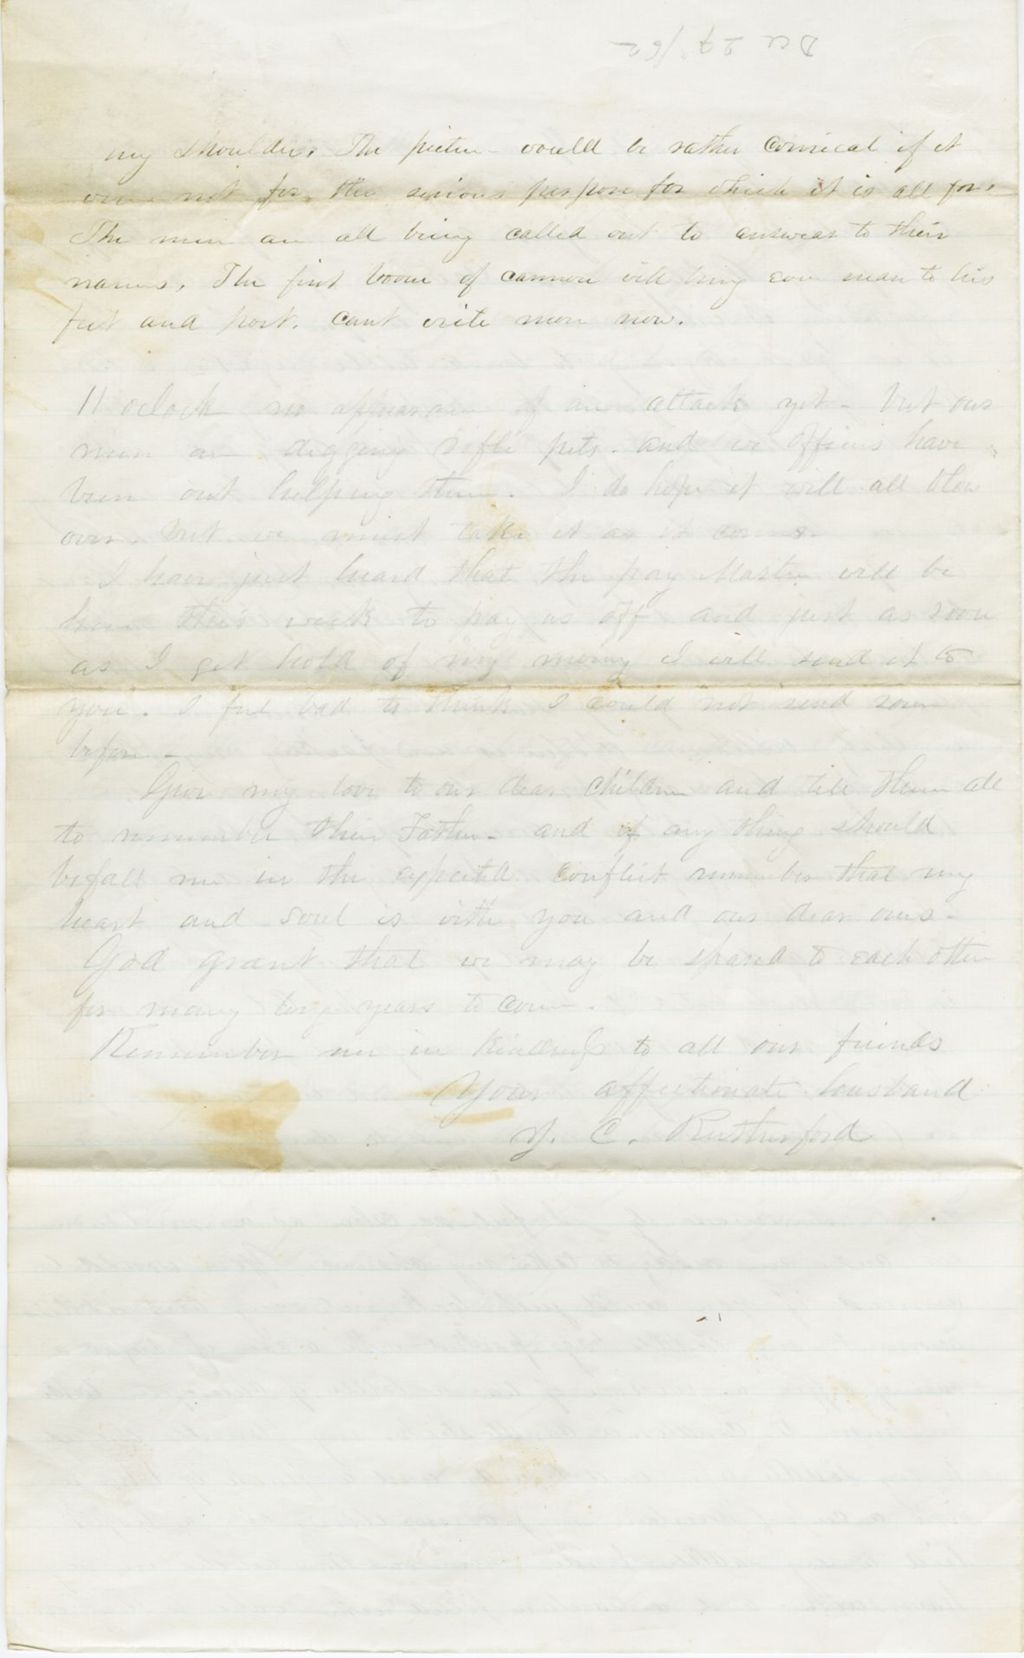 Dec 27/62
my shoulder. The picture would be rather comical if it
were not for the serious purpose for which it is all for.
The men are all being called out to answear to their
names. The first boom of cannon will bring ever man to his
feet and post. cant write more now.
11 oclock no appearance of an attack yet - but our
men are digging rifle pits. and we officers have
been out helping them. I do hope it will all blow
over. but we must take it as it comes
I have just heard that the pay Master will be
here this week to pay us off and just as soon
as I get hold of my money I will send it to
you. I feel bad to think I could not send some
before -
Give my love to our dear children and tell them all
to remember their Father - and if any thing should
befall me in the expected conflict remember that my
heart and soul is with you and our dear ones -
God grant that we may be spared to each other
for many long years to come -
Remember me in kindness to all our friends
Your affectionate husband
J. C. Rutherford